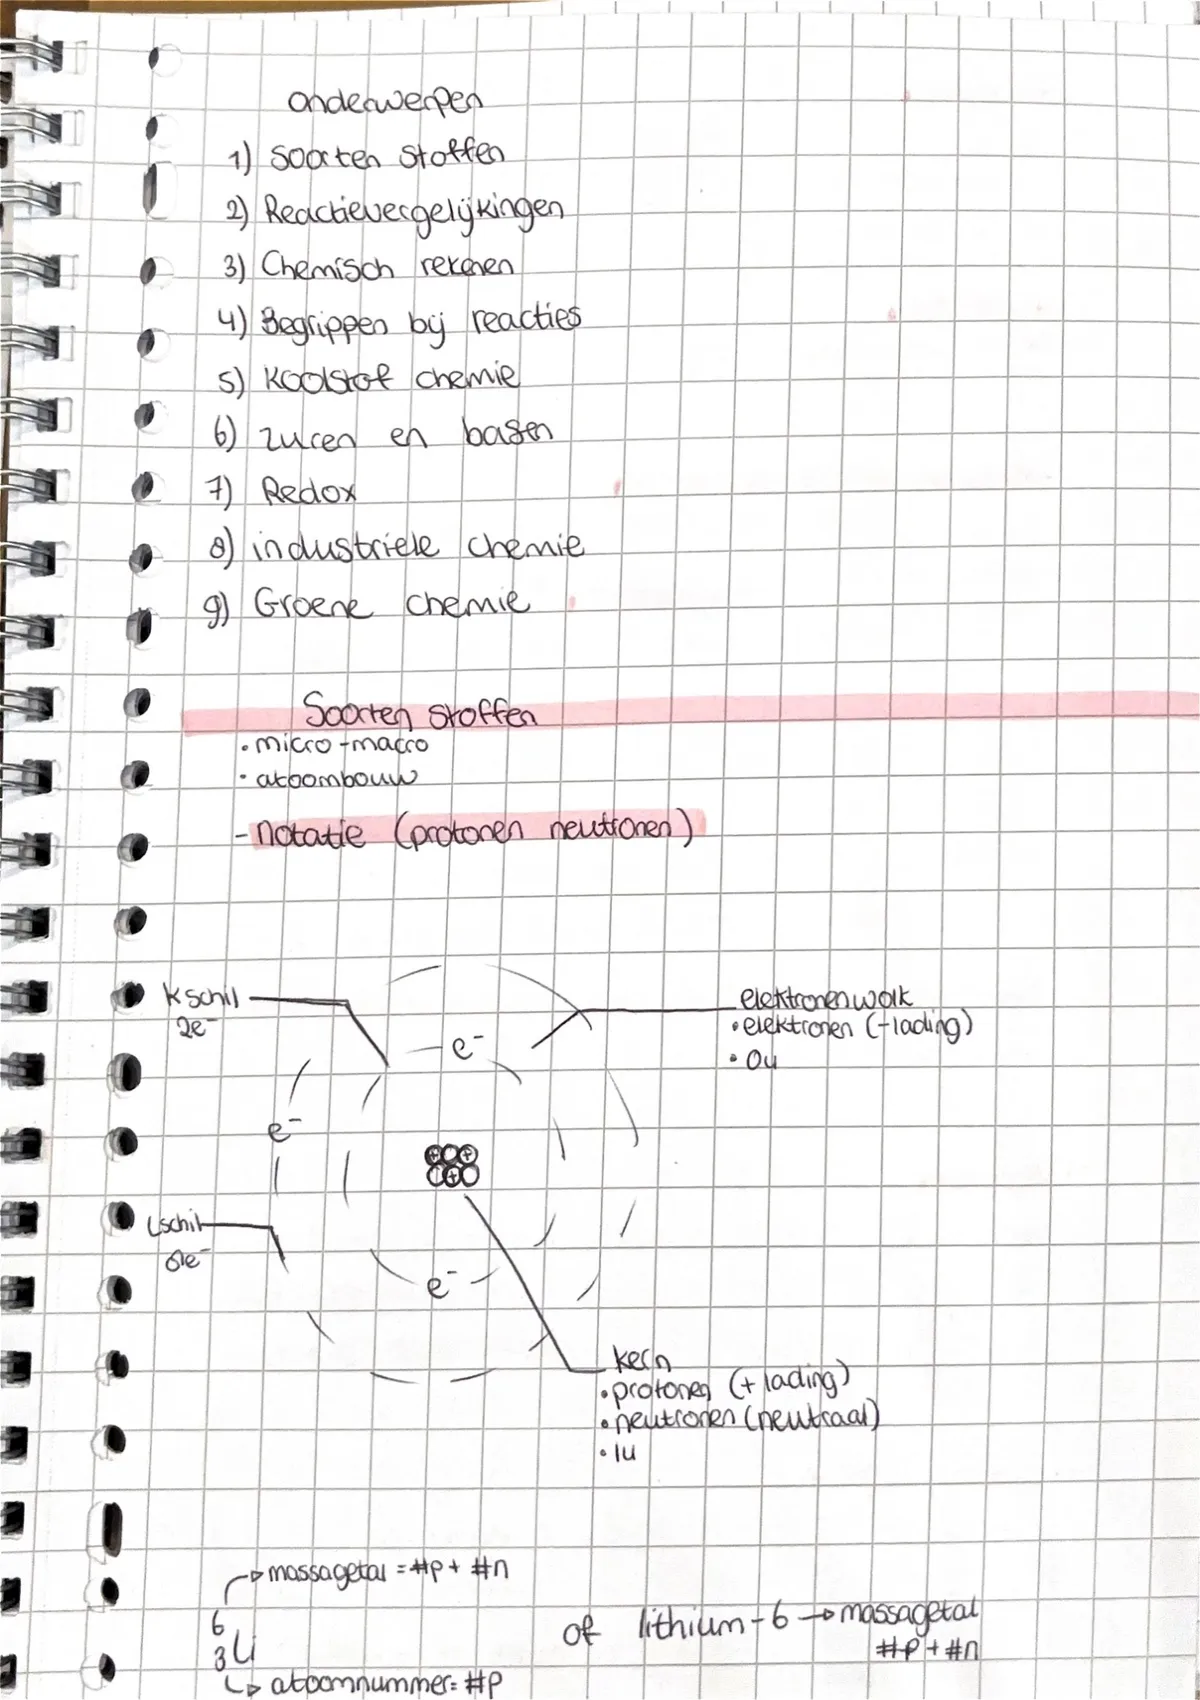 onderwerpen
1) Soorten Stoffen
2) Reactievergelijkingen
3) Chemisch rekenen
4) Begrippen bij reacties
5) Koolstof chemie
6) zuren en basen
7) Redox
8) industriele chemie
9) Groene chemie
Soorten stoffen
• micro-macro
• atoombouw
- notatie (protonen neutronen)
K schil
2e⁻
elektronenwolk
• elektronen (- lading)
• 0u
e⁻
e⁻
L schil
8e⁻
e⁻
kern
• protonen (+ lading)
• neutronen (neutraal)
• 1u
massagetal = #p + #n
6
3 Li
of lithium-6 → massagetal
#p + #n
atoomnummer = #p